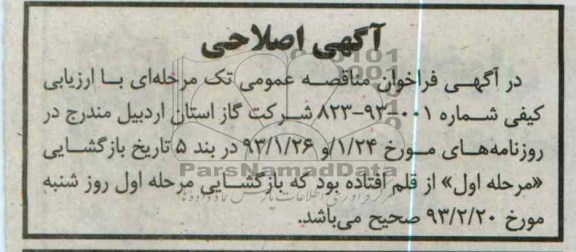 آگهی اصلاحی
در آگهی فراخوان مناقصه عمومی تک مرحله‌ای با ارزیابی
کیفی شماره ۰۰۱-۹۳-۸۲۳ شرکت گاز استان اردبیل مندرج در
روزنامه‌های مورخ ۱/۲۴/و ۹۳/۱/۲۶ در بند ۵ تاریخ بازگشایی
«مرحله اول» از قلم افتاده بود که بازگشایی مرحله اول روز شنبه
مورخ ۹۳/۲/۲۰ صحیح می‌باشد.
ParsNamadData